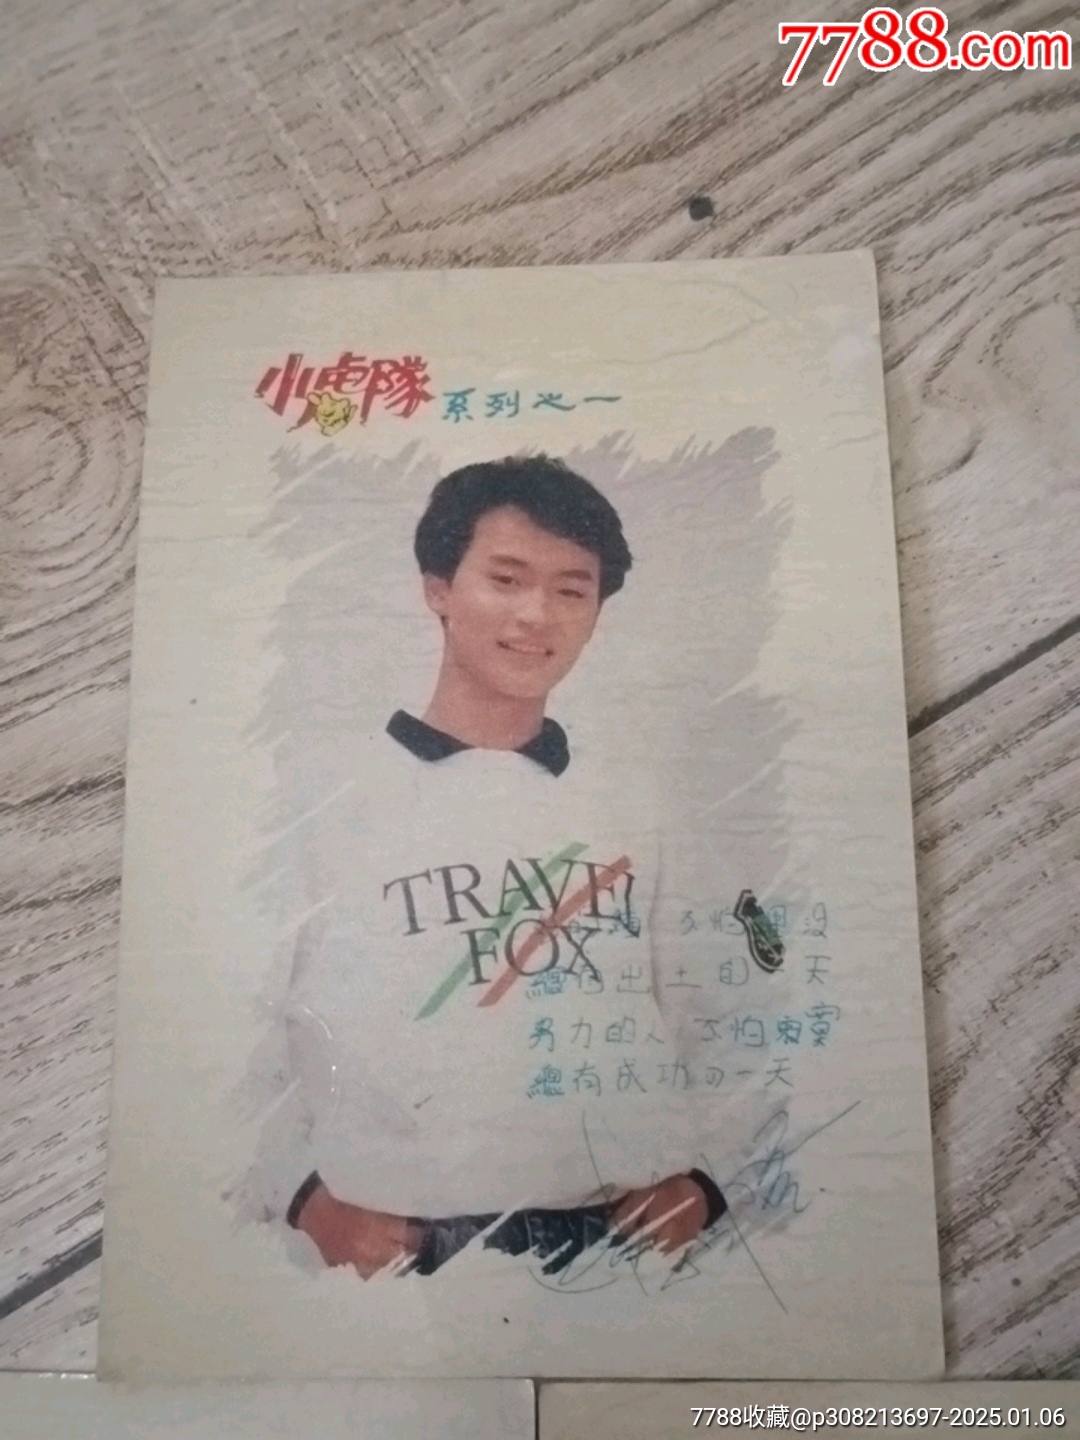 7788.com
小虎隊 系列之一
TRAVEL
FOX
不怕埋没
總有出土的一天
努力的人 不怕寂寞
總有成功的一天
7788收藏@p308213697-2025.01.06